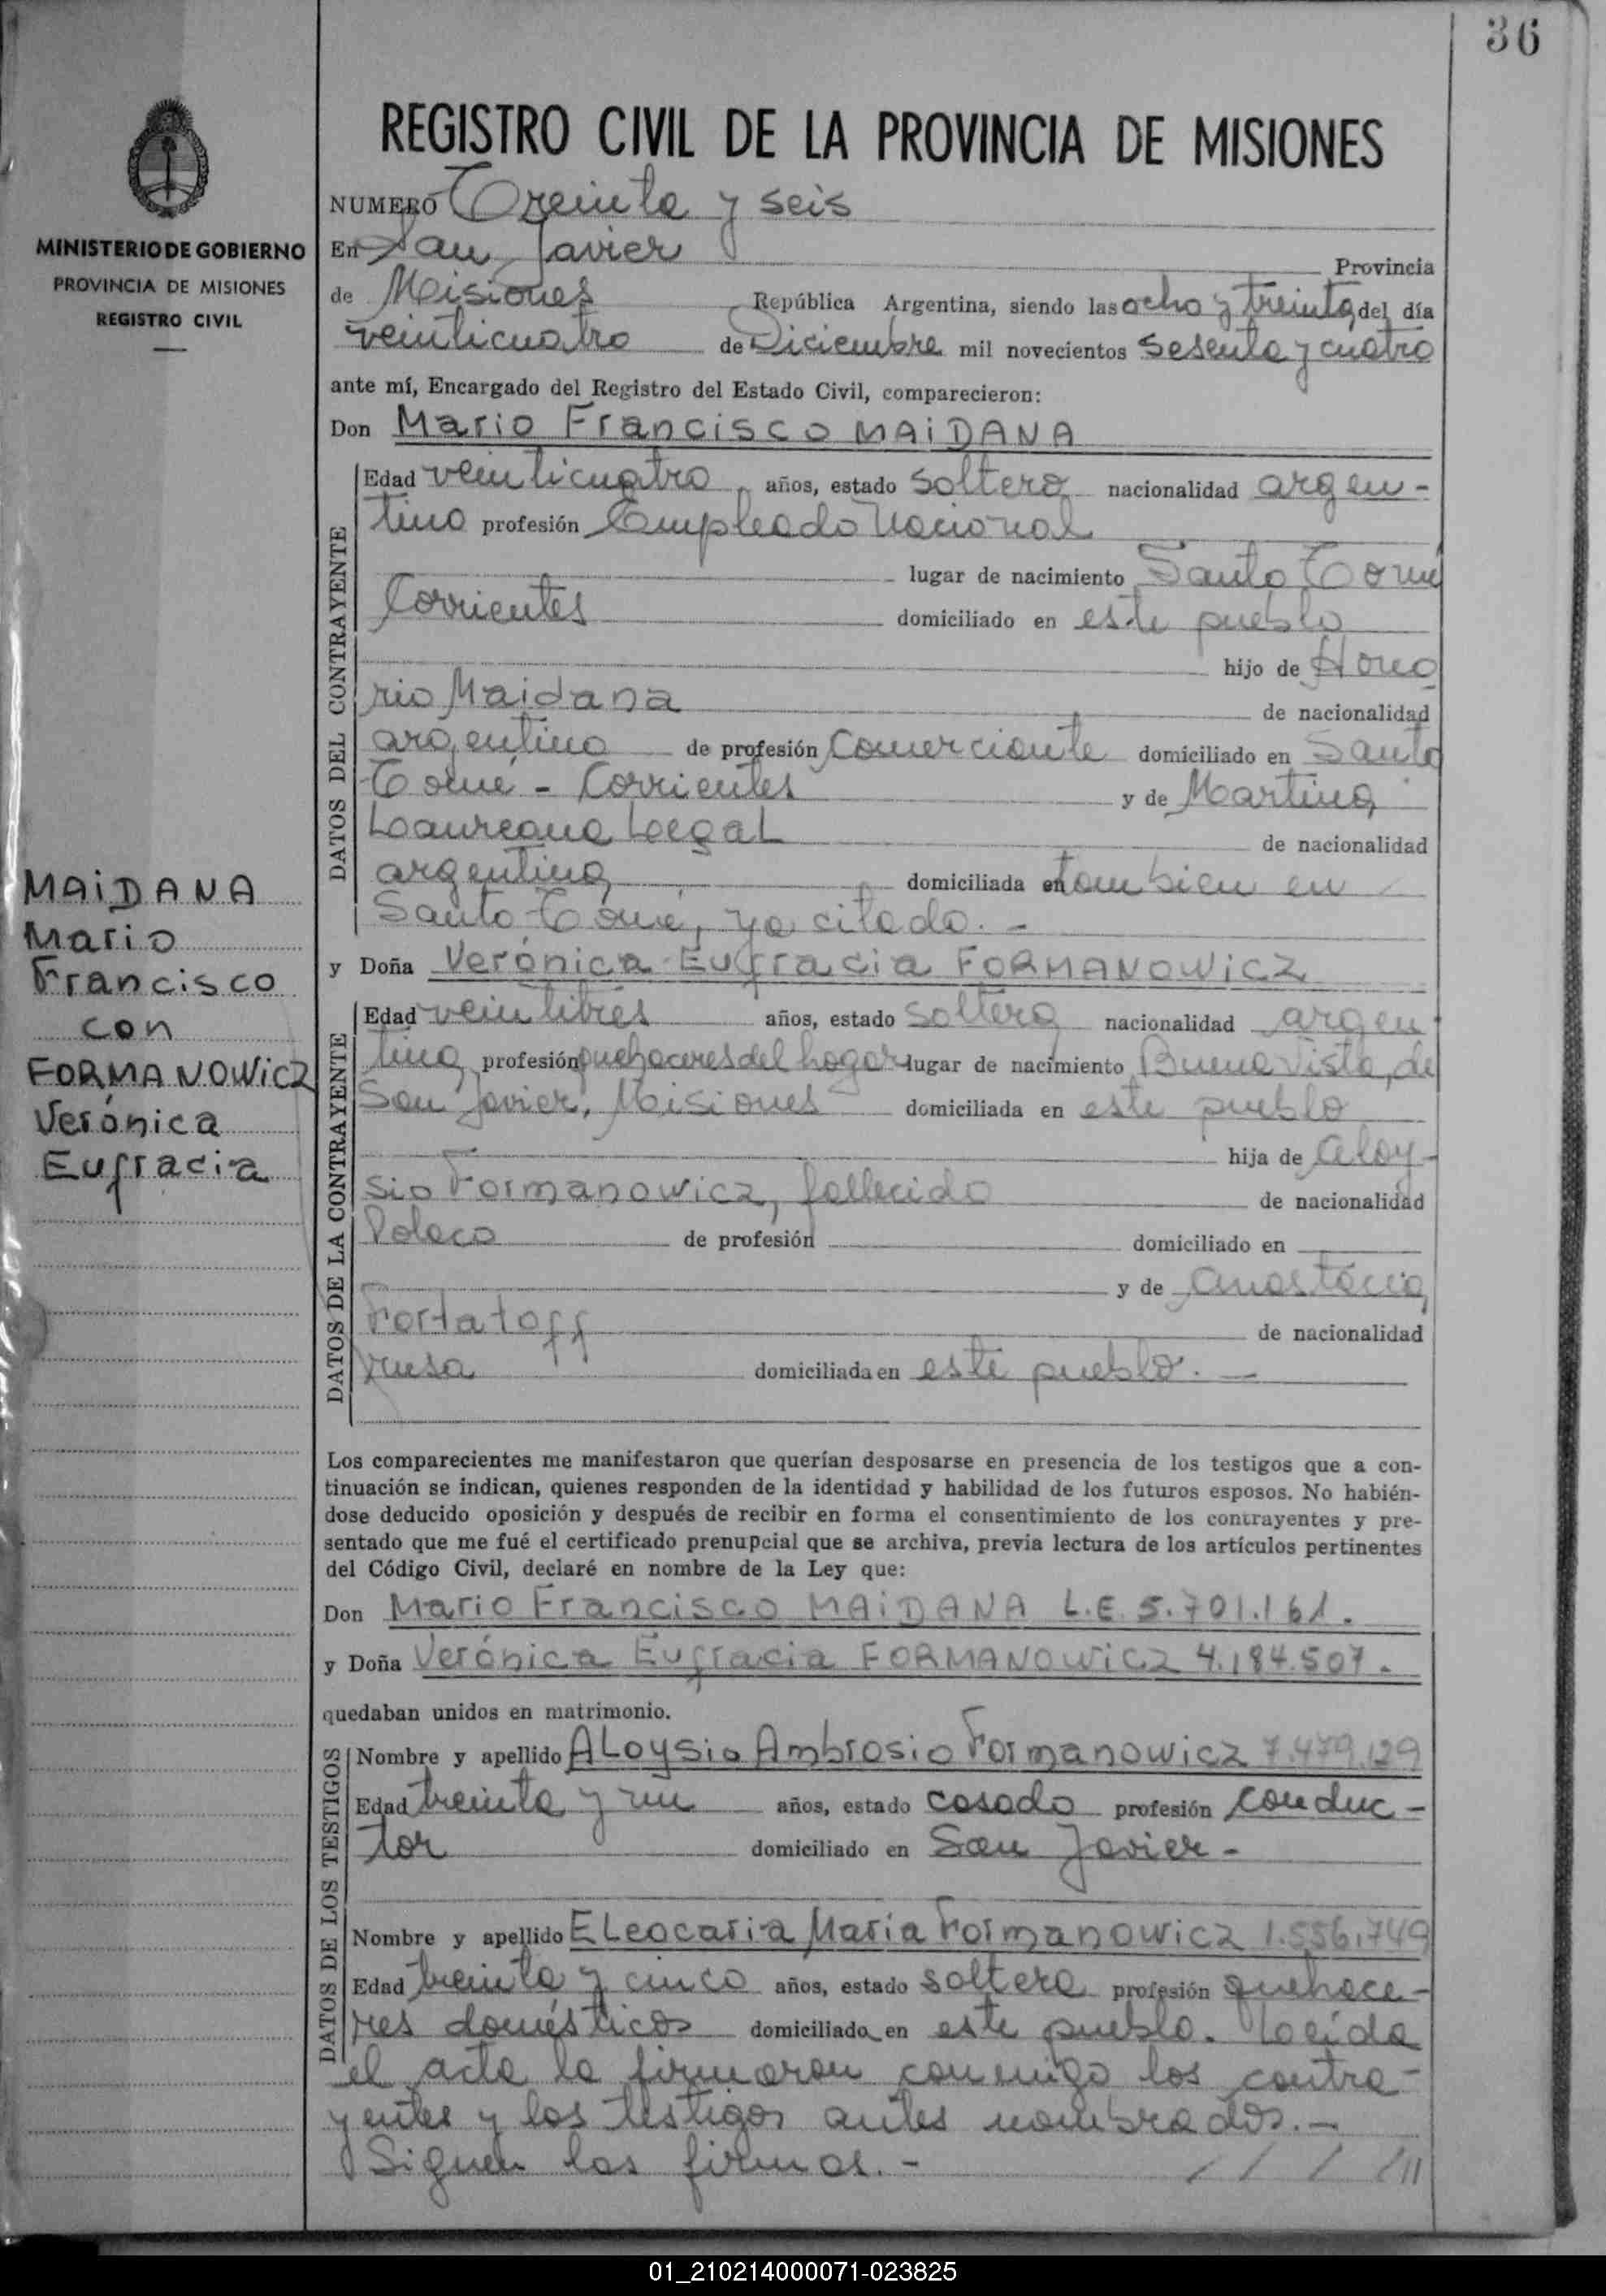 36
REGISTRO CIVIL DE LA PROVINCIA DE MISIONES
MINISTERIO DE GOBIERNO
PROVINCIA DE MISIONES
REGISTRO CIVIL
NUMERO Treinta y seis
En San Javier Provincia
de Misiones República Argentina, siendo las ocho y treinta del día
veinticuatro de Diciembre mil novecientos sesenta y cuatro
ante mí, Encargado del Registro del Estado Civil, comparecieron:
Don Mario Francisco MAiDANA
DATOS DEL CONTRAYENTE
Edad veinticuatro años, estado soltero nacionalidad argen-
tino profesión Empleado Nacional
lugar de nacimiento Santo Tomé
Corrientes domiciliado en este pueblo
hijo de Hono
rio Maidana de nacionalidad
argentino de profesión Comerciante domiciliado en Santo
Tomé - Corrientes y de Martina
Laureana Legal de nacionalidad
argentina domiciliada en tambien en
Santo Tomé, ya citado. -
MAiDANA
Mario
Francisco
con
FORMANOWiCZ
Verónica
Eufracia
y Doña Verónica Eufracia FORMANOWiCZ
DATOS DE LA CONTRAYENTE
Edad veintitres años, estado soltera nacionalidad argen
tina profesión quehaceres del hogar lugar de nacimiento Buena Vista, de
San Javier, Misiones domiciliada en este pueblo
hija de Aloy-
sio Formanowicz, fallecido de nacionalidad
Polaco de profesión domiciliado en
y de Anastácia
Fortatoff de nacionalidad
rusa domiciliada en este pueblo. -
Los comparecientes me manifestaron que querían desposarse en presencia de los testigos que a con-
tinuación se indican, quienes responden de la identidad y habilidad de los futuros esposos. No habién-
dose deducido oposición y después de recibir en forma el consentimiento de los contrayentes y pre-
sentado que me fué el certificado prenupcial que se archiva, previa lectura de los artículos pertinentes
del Código Civil, declaré en nombre de la Ley que:
Don Mario Francisco MAiDANA L.E. 5.701.161.
y Doña Verónica Eufracia FORMANOWiCZ 4.184.507.
quedaban unidos en matrimonio.
DATOS DE LOS TESTIGOS
Nombre y apellido ALoysio Ambrosio Formanowicz 7.479.129
Edad treinta y un años, estado casado profesión conduc-
tor domiciliado en San Javier -
Nombre y apellido ELeocaria María Formanowicz 1.556.749
Edad treinta y cinco años, estado soltera profesión quehace-
res domésticos domiciliada en este pueblo. Leída
el acta la firmaron conmigo los contra-
yentes y los testigos antes nombrados. -
Siguen las firmas. - / / / /11
01_210214000071-023825